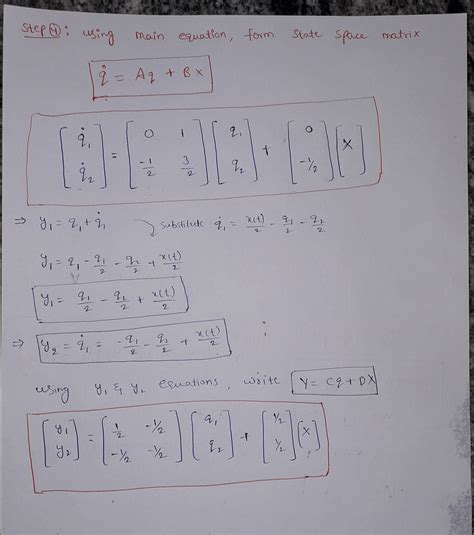 Step 4: using main equation, form State Space matrix
q̇ = Aq + Bx
[q̇₁ q̇₂] = [0 1 -1/2 3/2] [q₁ q₂] + [0 -1/2] [x]
⇒ y₁ = q₁ + q̇₁ substitute q̇₁ = x(t)/2 - q₁/2 - q₂/2
y₁ = q₁ - q₁/2 - q₂/2 + x(t)/2
y₁ = q₁/2 - q₂/2 + x(t)/2
⇒ y₂ = q̇₁ = -q₁/2 - q₂/2 + x(t)/2
using y₁ & y₂ equations, write Y = Cq + DX
[y₁ y₂] = [1/2 -1/2 -1/2 -1/2] [q₁ q₂] + [1/2 1/2] [x]